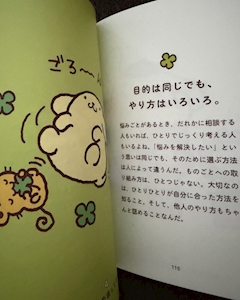 ごろ〜ん
目的は同じでも、
やり方はいろいろ。
悩みごとがあるとき、だれかに相談する
人もいれば、ひとりでじっくり考える人
もいるよね。「悩みを解決したい」とい
う思いは同じでも、そのために選ぶ方法
は人によって違うんだ。ものごとへの取
り組み方は、ひとつじゃない。大切なの
は、ひとりひとりが自分に合った方法を
知ること。そして、他人のやり方もちゃ
んと認めることなんだ。
116